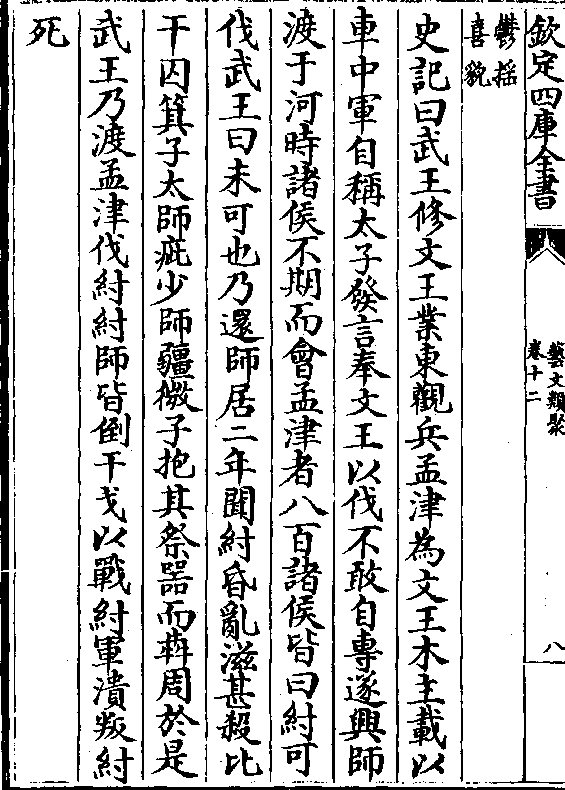 欽定四庫全書
藝文類聚
卷十二
八
鬱搖
喜貌
史記曰武王修文王業東觀兵孟津為文王木主載以
車中軍自稱太子發言奉文王以伐不敢自專遂興師
渡于河時諸侯不期而會孟津者八百諸侯皆曰紂可
伐武王曰未可也乃還師居二年聞紂昏亂滋甚殺比
干囚箕子太師疵少師彊微子抱其祭器而犇周於是
武王乃渡孟津伐紂紂師皆倒干戈以戰紂軍潰叛紂
死